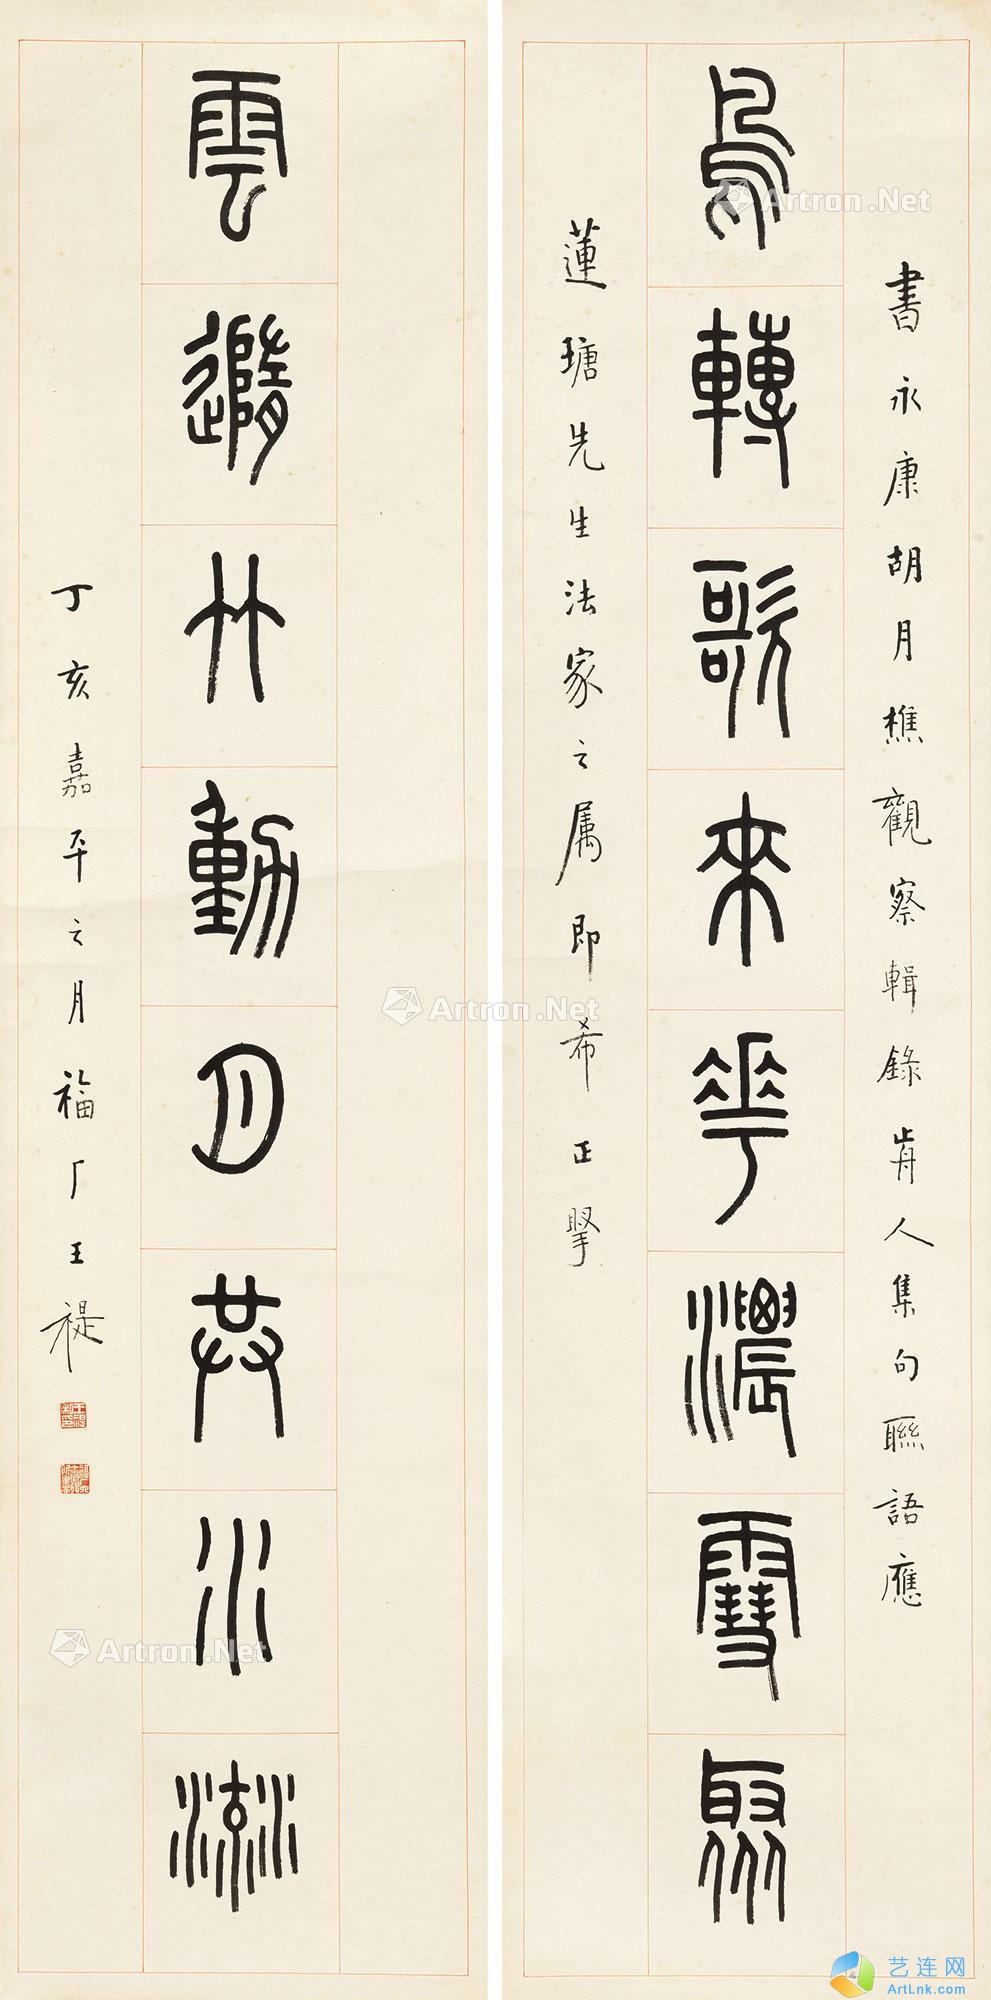 書永康胡月樵觀察輯錄歬人集句聯語應
鳥轉歌來華濃雪聚
蓮瑭先生法家之属即希正掔
雲隨竹動月共水流
丁亥嘉平之月福厂王禔
Artron.Net
Artron.Net
Artron.Net
艺连网
ArtLnk.com